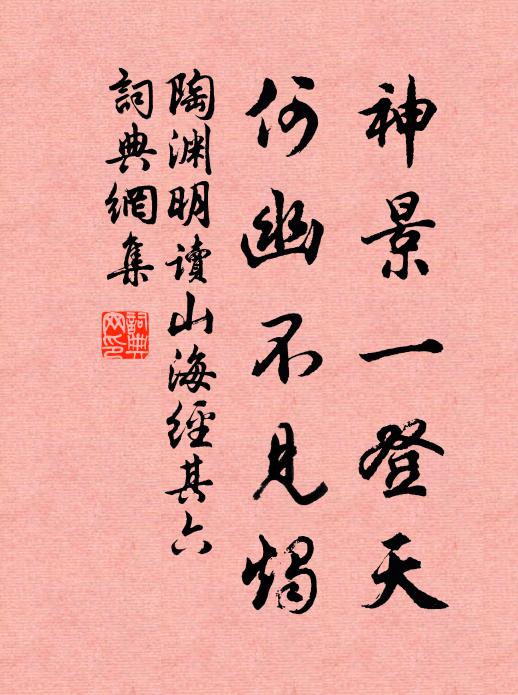 神景一登天
何幽不見燭
陶渊明读山海經其六
詞典網集
詞典網印